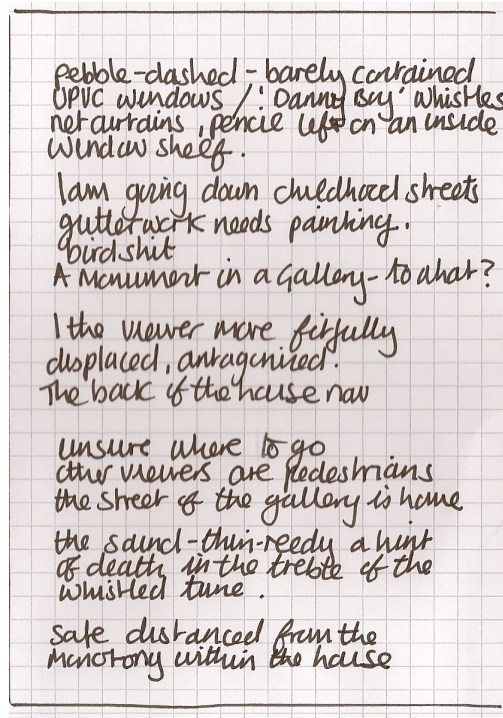 pebble-dashed - barely contained
UPVC windows / 'Danny Boy' whistles
net curtains, pencil left on an inside
window shelf.
I am going down childhood streets
gutterwork needs painting.
birdshit
A Monument in a Gallery - to what?
I the viewer move fitfully
displaced, antagonized.
The back of the house now
unsure where to go
other viewers are pedestrians
the street of the gallery is home
the sound-thin-reedy a hint
of death in the treble of the
whistled tune.
safe distanced from the
monotony within the house